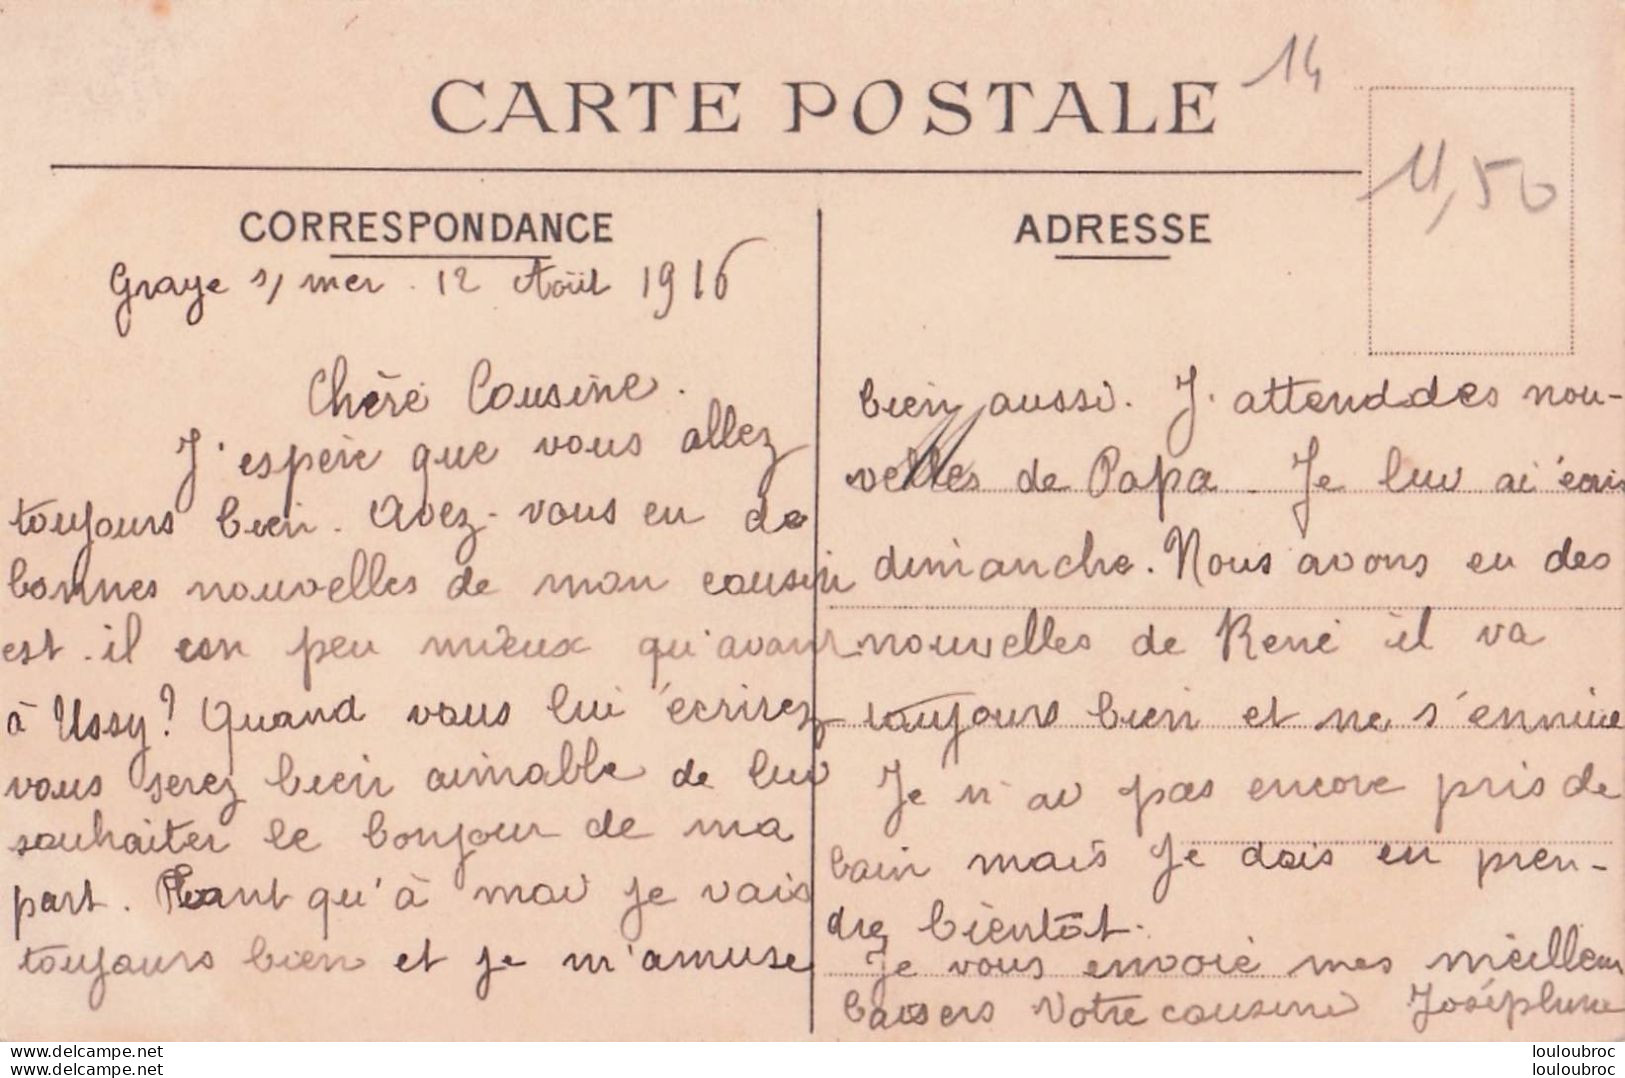 14
CARTE POSTALE
11,50
CORRESPONDANCE
Graye s/ mer. 12 Août 1916
Chère Cousine.
J'espère que vous allez
toujours bien. Avez-vous eu de
bonnes nouvelles de mon cousin
est-il un peu mieux qu'avant
à Ussy? Quand vous lui écrirez
vous serez bien aimable de lui
souhaiter le bonjour de ma
part. Tant qu'à moi je vais
toujours bien et je m'amuse
ADRESSE
bien aussi. J'attend des nou-
velles de Papa. Je lui ai écris
dimanche. Nous avons eu des
nouvelles de René il va
toujours bien et ne s'ennuie
Je n'ai pas encore pris de
bain mais je dois en pren-
drez bientôt.
Je vous envoie mes meilleurs
baisers Votre cousine Joséphine
www.delcampe.net
www.delcampe.net
louloubroc
louloubroc